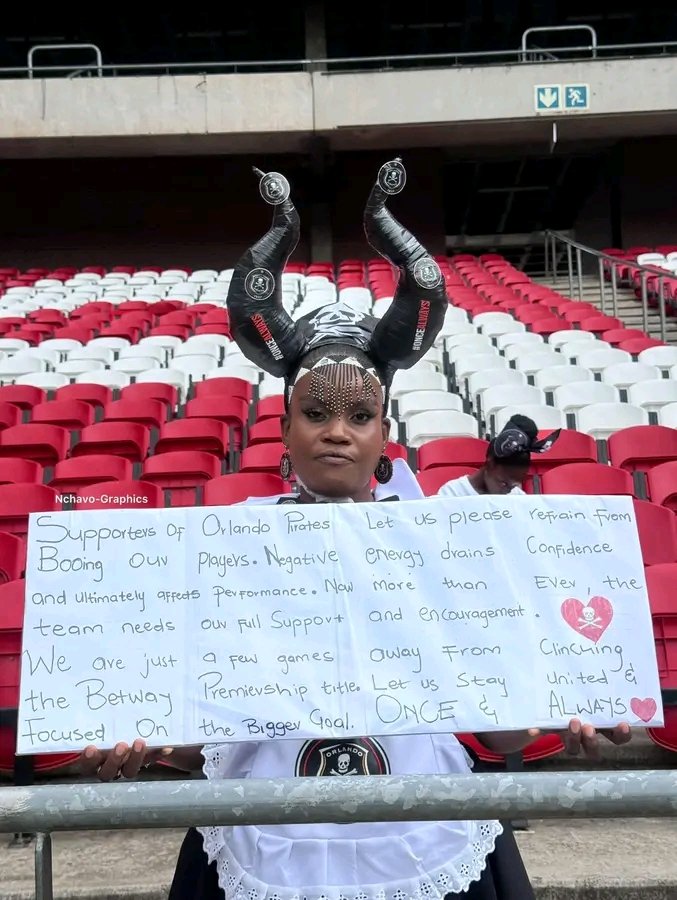 #ONCEALWAYS
#ONCEALWAYS
Nchavo-Graphics
Supporters Of Orlando Pirates Let us please refrain From
Booing our players. Negative energy drains Confidence
and ultimately affects Performance. Now more than Ever, the
team needs our Full Support and encouragement.
We are just a few games away From Clinching
the Betway Premiership title. Let us Stay united &
Focused On the Bigger Goal. ONCE & ALWAYS
ORLANDO